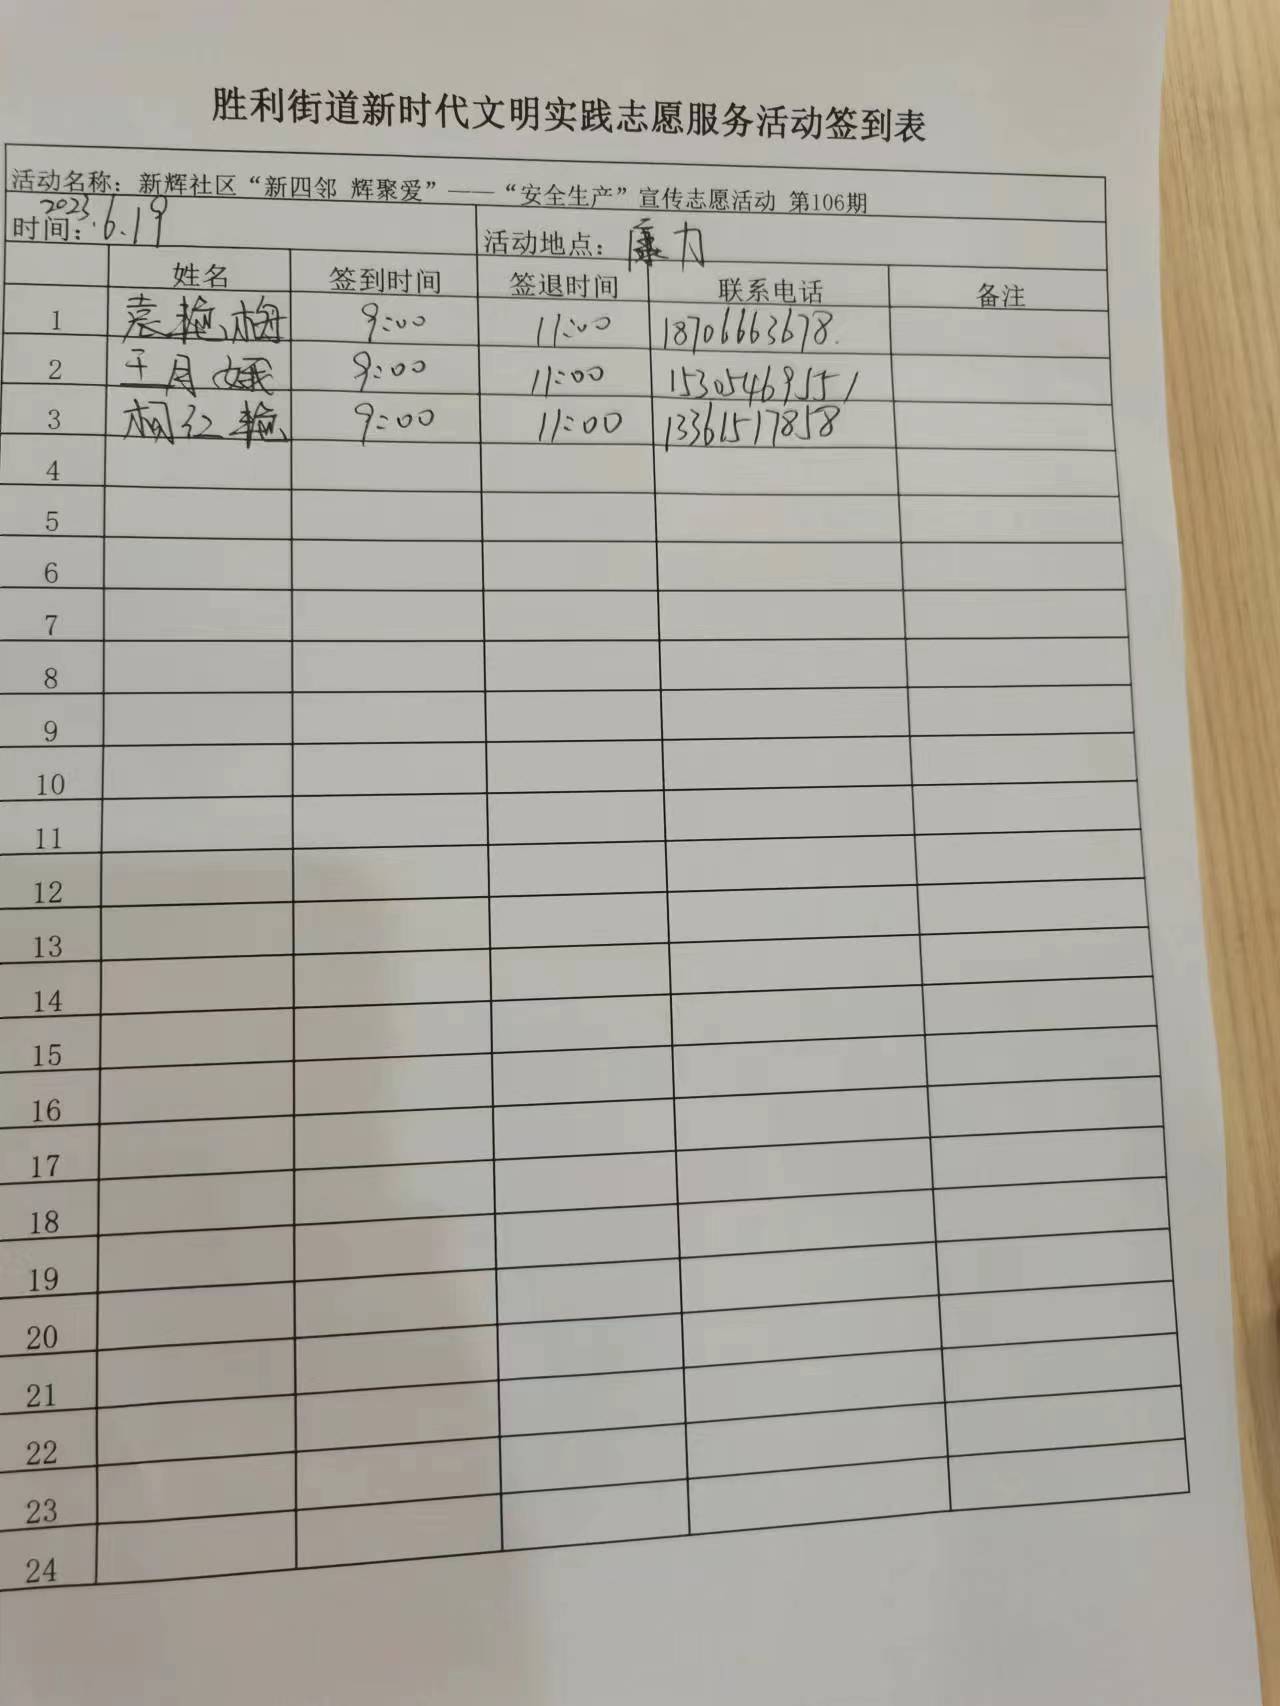 胜利街道新时代文明实践志愿服务活动签到表
活动名称：新辉社区“新四邻 辉聚爱”——“安全生产”宣传志愿活动 第106期
时间：2023.6.19 活动地点：康力
姓名 签到时间 签退时间 联系电话 备注
1 袁艳梅 9:00 11:00 18706663678.
2 王月娥 9:00 11:00 15305469551
3 红艳 9:00 11:00 13361517858
4
5
6
7
8
9
10
11
12
13
14
15
16
17
18
19
20
21
22
23
24